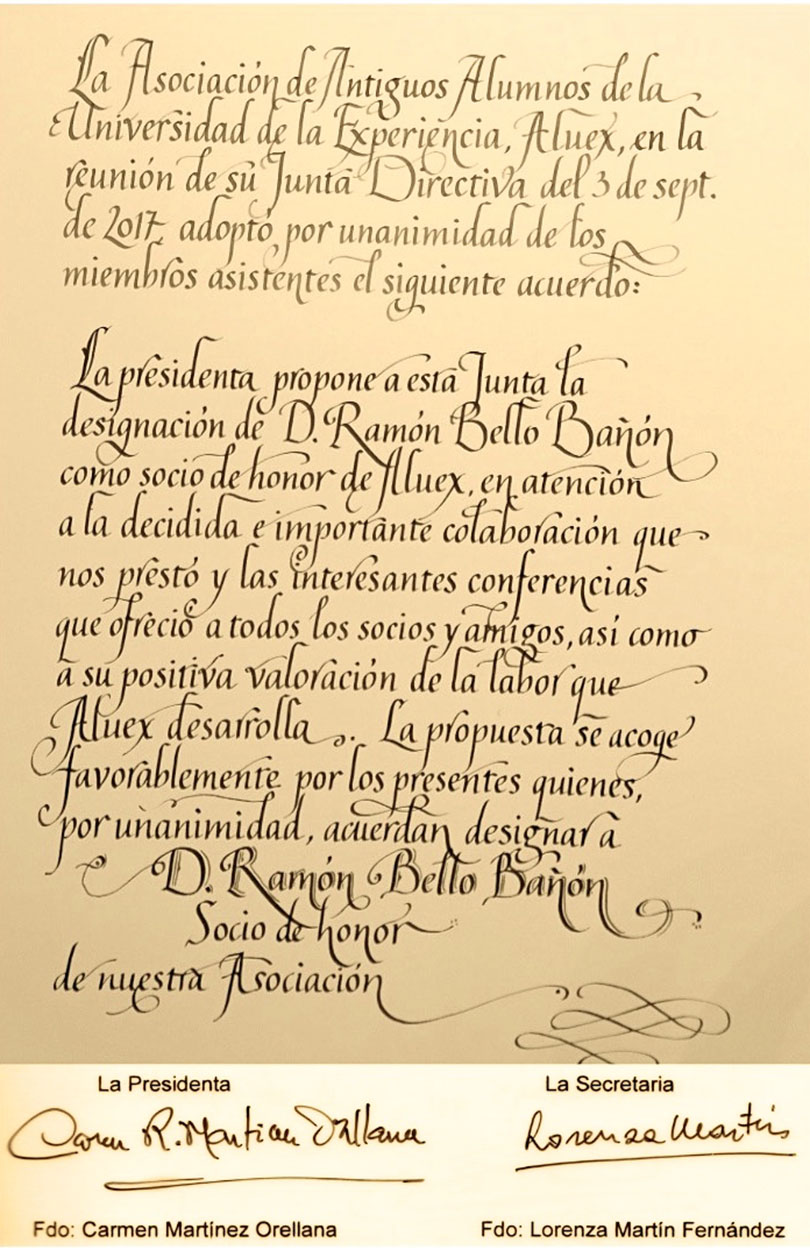 La Asociación de Antiguos Alumnos de la
Universidad de la Experiencia, Aluex, en la
reunión de su Junta Directiva del 3 de sept.
de 2017, adoptó por unanimidad de los
miembros asistentes el siguiente acuerdo:
La presidenta propone a esta Junta la
designación de D. Ramón Bello Bañón
como socio de honor de Aluex, en atención
a la decidida e importante colaboración que
nos prestó y las interesantes conferencias
que ofreció a todos los socios y amigos, así como
a su positiva valoración de la labor que
Aluex desarrolla. La propuesta se acoge
favorablemente por los presentes quienes,
por unanimidad, acuerdan designar a
D. Ramón Bello Bañón
Socio de honor
de nuestra Asociación
La Presidenta La Secretaria
Carmen R. Martínez Orellana Lorenza Martín
Fdo: Carmen Martínez Orellana Fdo: Lorenza Martín Fernández